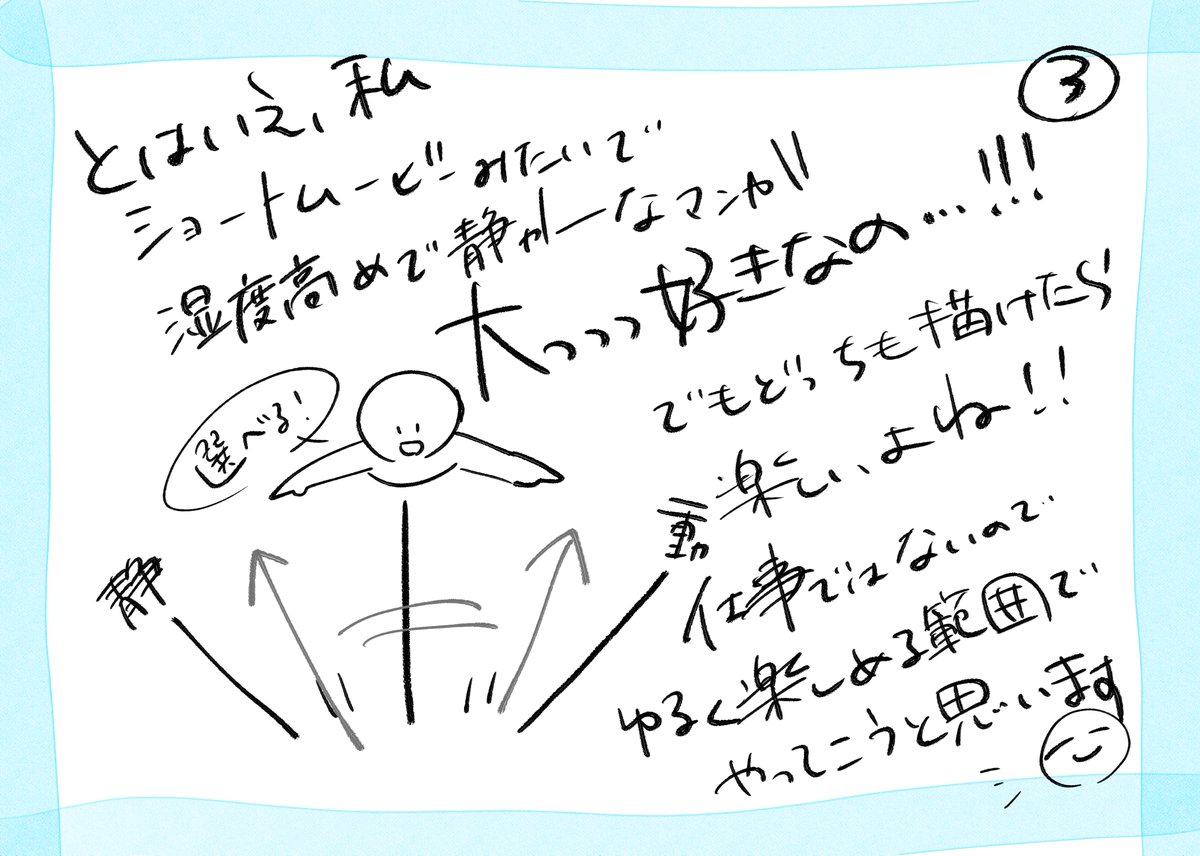 ③
とはいえ、私
ショートムービーみたいで
湿度高めで静かーなマンガ
大っっっ好きなの…!!!
でもどっちも描けたら
楽しいよね!!
選べる!
静
動
仕事ではないので
ゆるく楽しめる範囲で
やってこうと思います